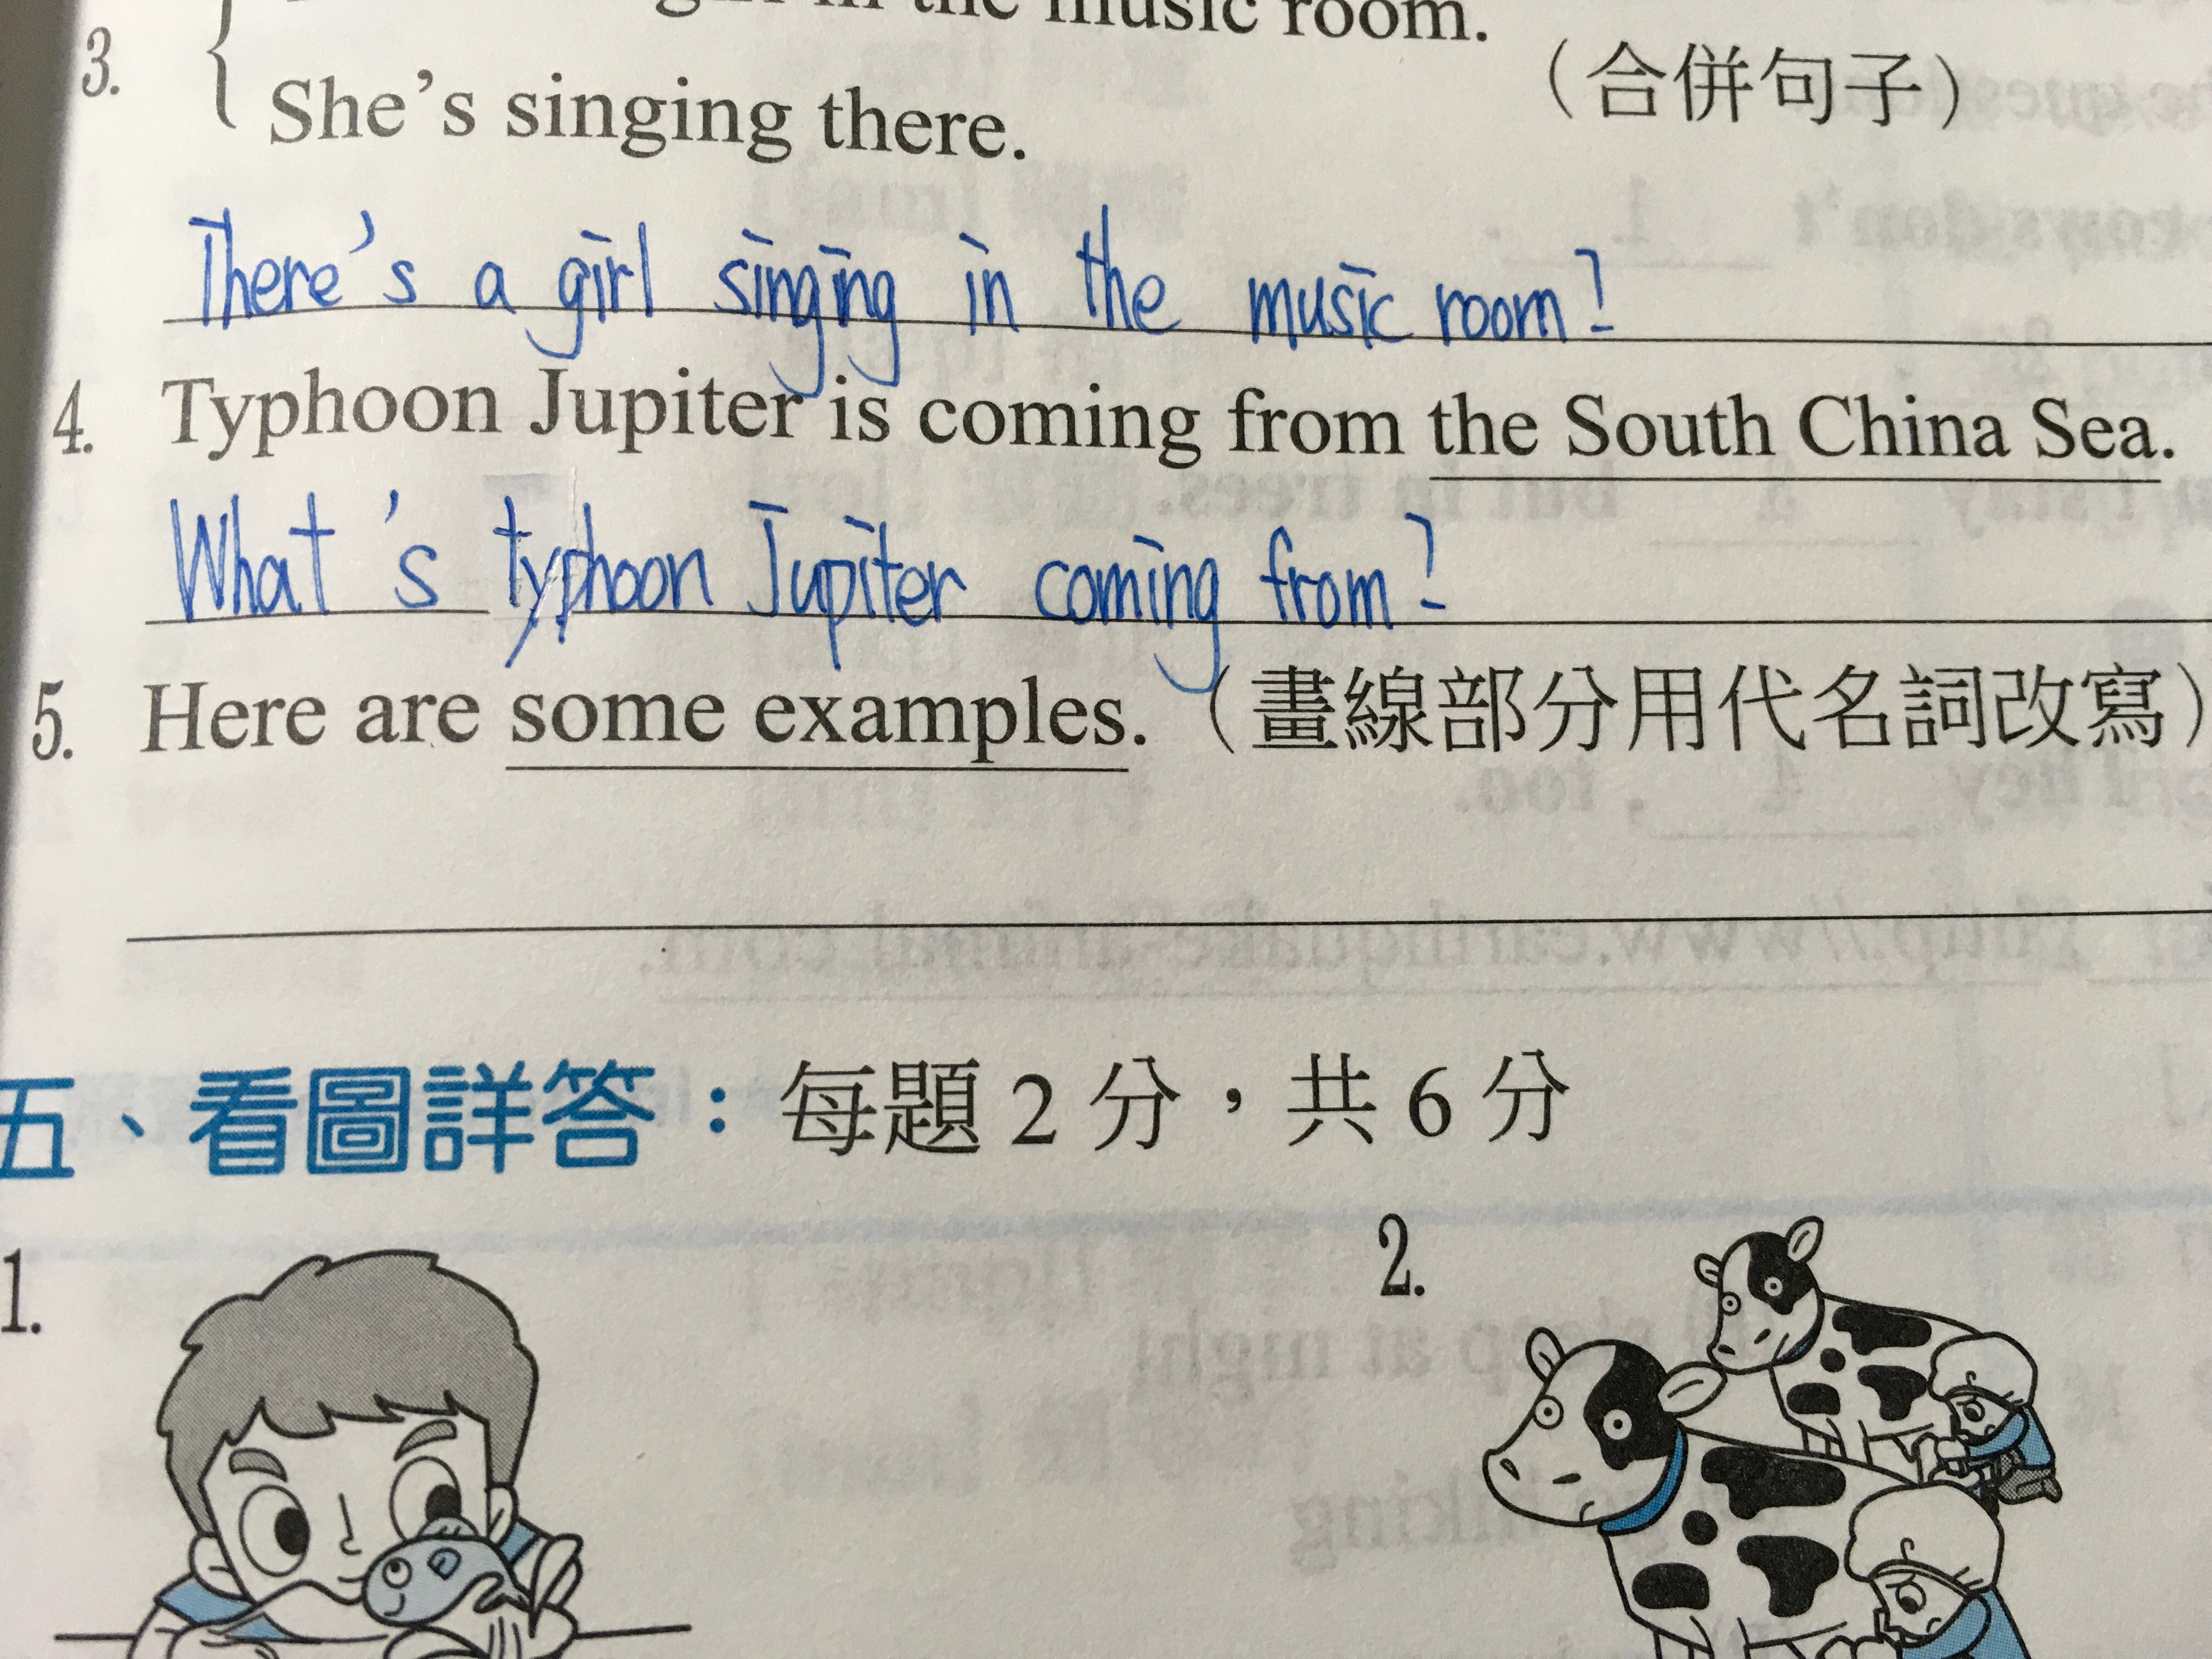 in the music room.
3. She's singing there. (合併句子)
There's a girl singing in the music room?
4. Typhoon Jupiter is coming from the South China Sea.
What's typhoon Jupiter coming from?
5. Here are some examples. (畫線部分用代名詞改寫)
五、看圖詳答：每題2分，共6分
1. 2.